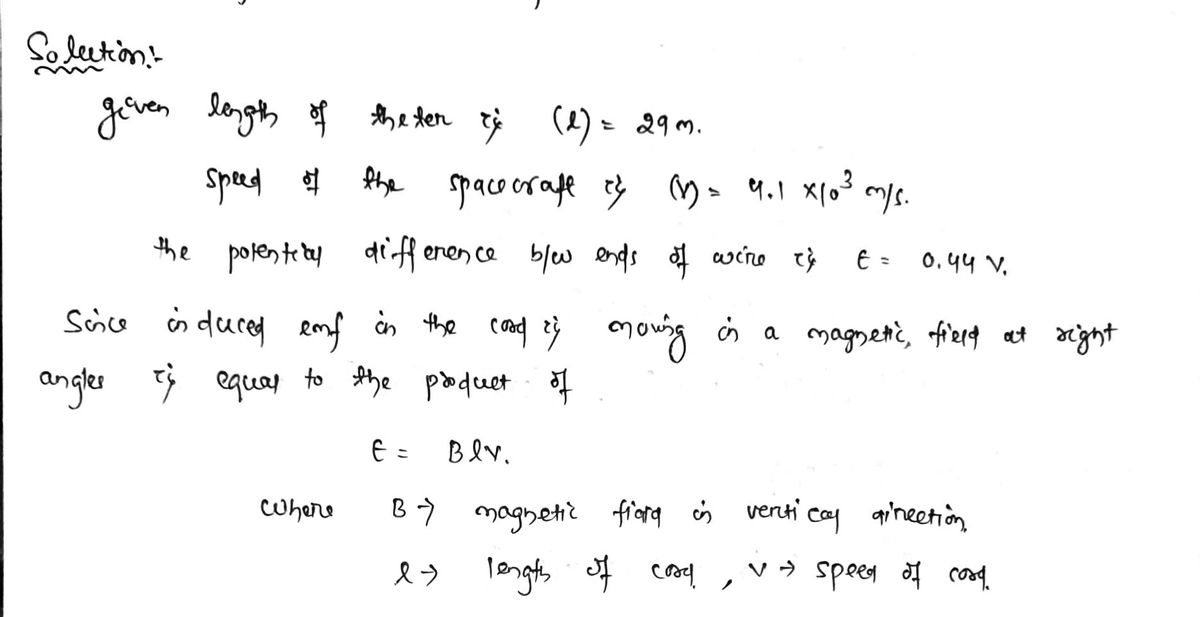 Solution:-
given length of thether is (l) = 29 m.
speed of the spacecraft is (v) = 4.1 x10³ m/s.
the potential difference b/w ends of wire is E = 0.44 V.
Since induced emf in the cord is moving in a magnetic, field at right
angles is equal to the product of
E = Blv.
where B → magnetic field in vertical direction,
l → length of cord, v → speed of cord.